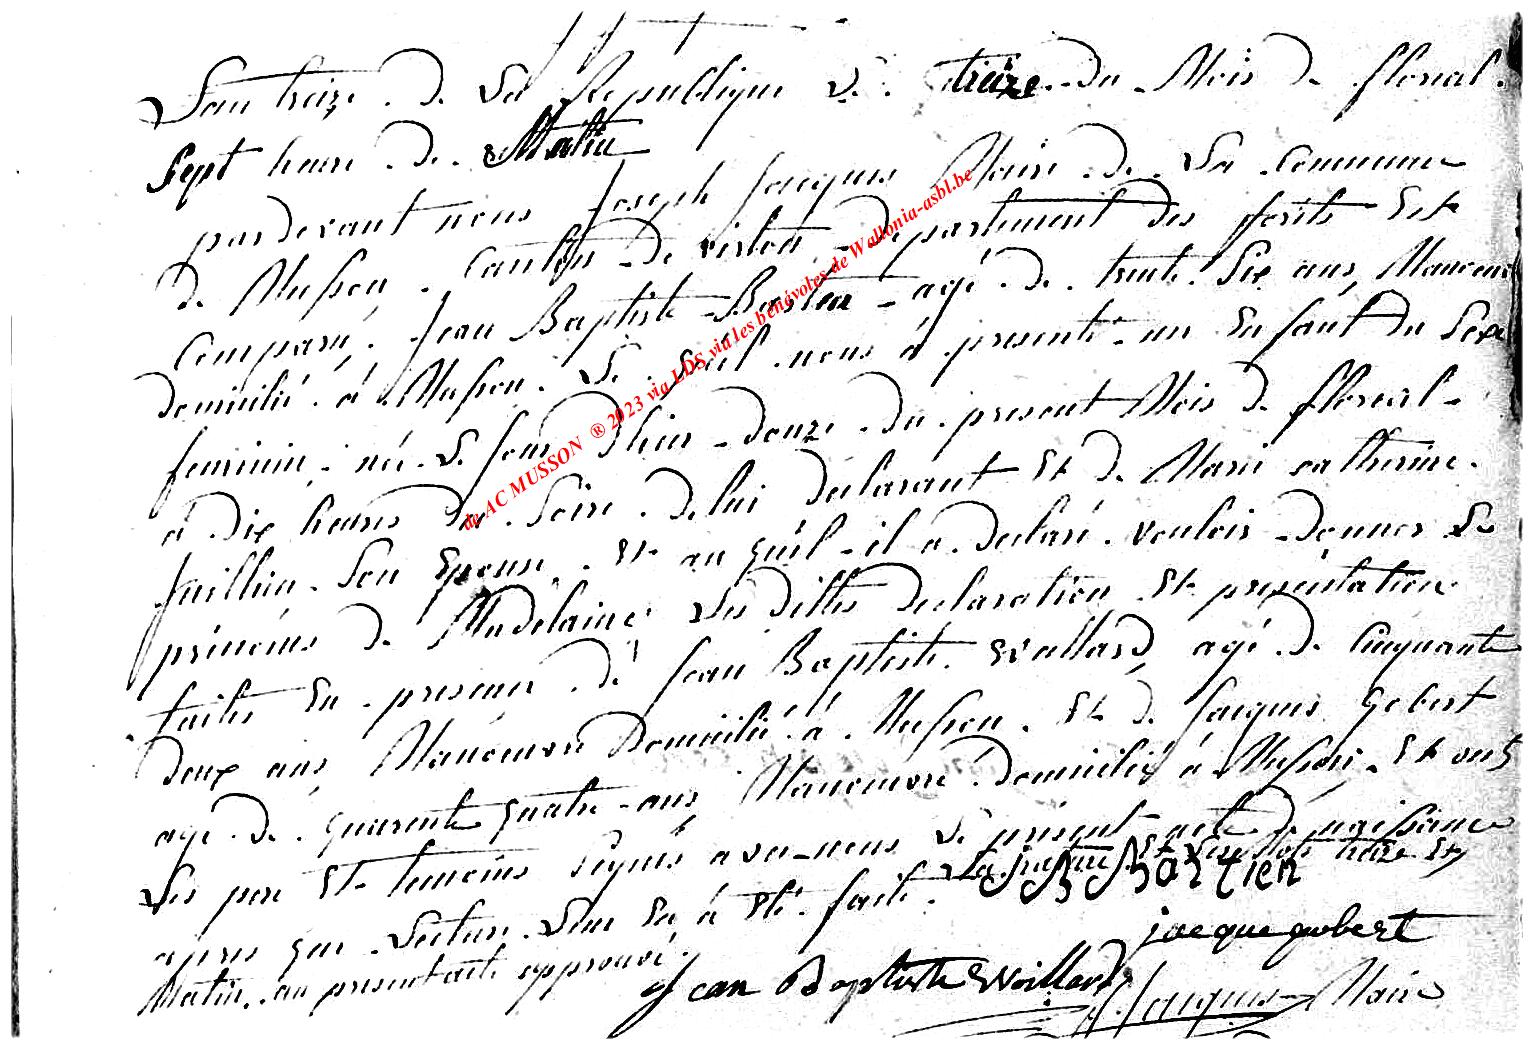 L'an treize de La Republique Le treize du Mois de floreal
Sept heure de Matin
pardevant nous Joseph Jacques Maire de La Commune
de Musson Canton de virton departement des forêts Est
Comparu Jean Baptiste Bastien agé de trente Six ans Manoeuvre
domicilié à Musson Le quel nous à presenté un Enfant du Sexe
feminin né Le jour D'hier douze du present Mois de floreal
à dix heures du Soire de lui declarant Et de Marie catherine
Son Epouse Et au quel il à declaré vouloir donner Le
prenoms de Madelaine Les dittes declaration Et presentation
faites En presence de Jean Baptiste Wallard agé de Cinquante
deux ans Manoeuvre Domicilié à Musson Et de Jacques Gobert
agé de quarente quatre ans Manoeuvre domicilié à Musson Et ont
Les pere Et temoins Signés avec nous Le présent acte de naissance
apres que Lecture Leur En à Eté faite. Et Les mots treize Et
Matin au present acte approuvé JB Bastien
jacque gobert
Jean Baptiste Woillard J Jacques Maire
de AC MUSSON ® 2023 via LDS via les bénévoles de Wallonia-asbl.be